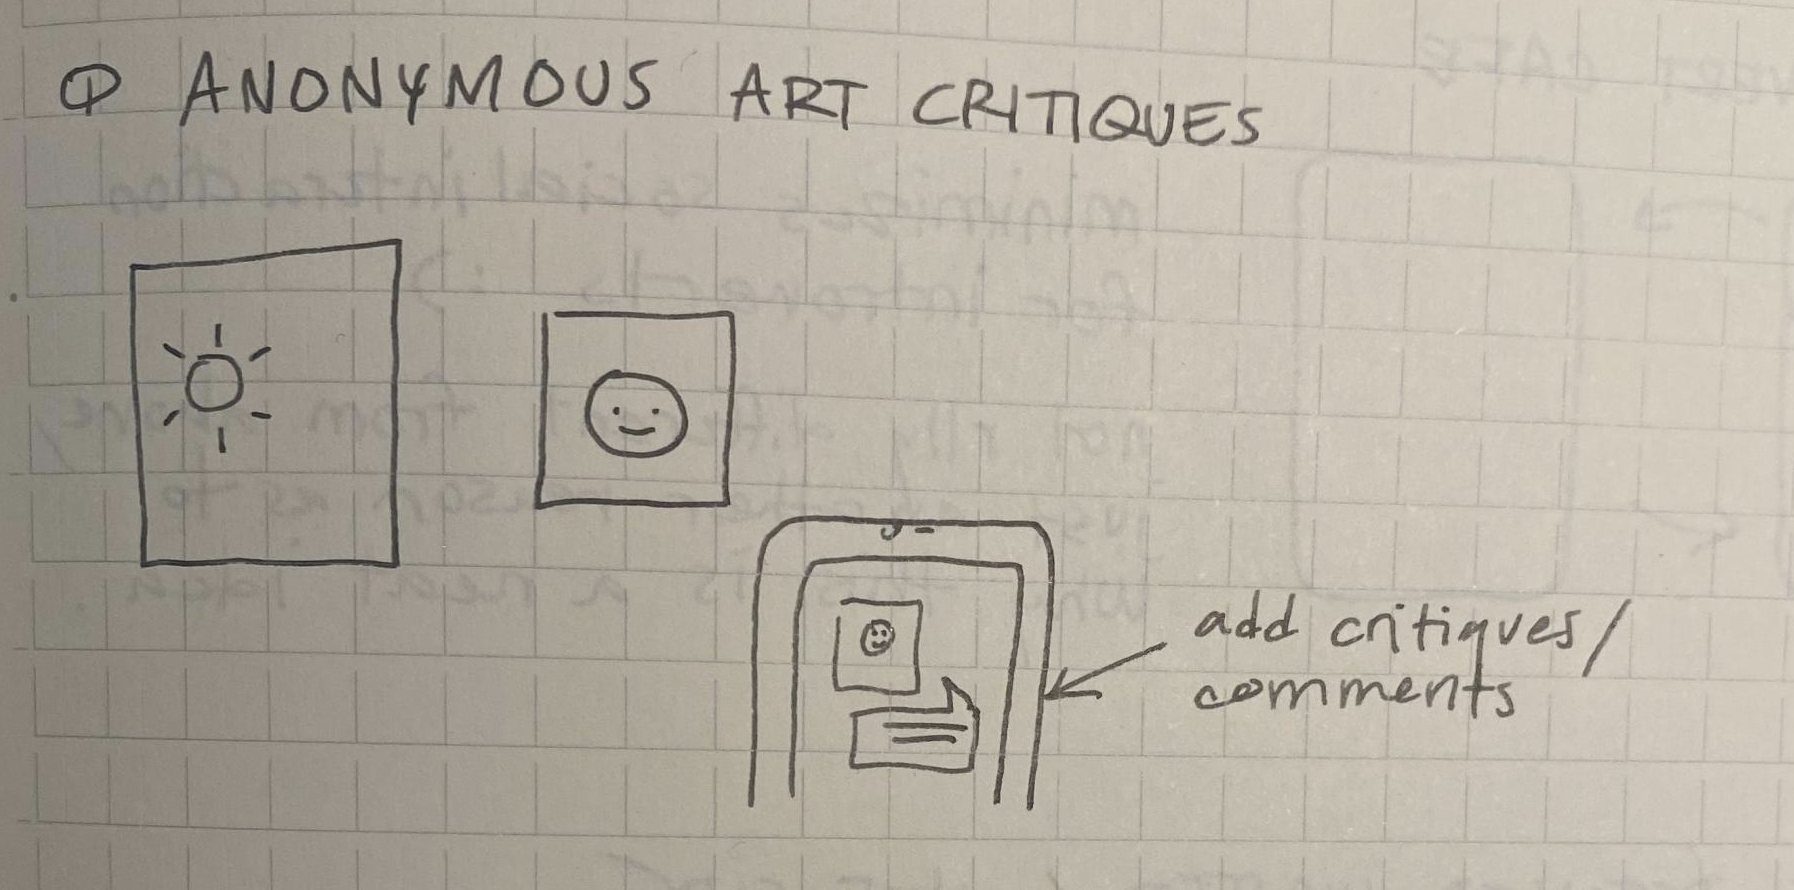 ANONYMOUS ART CRITIQUES
add critiques/
comments